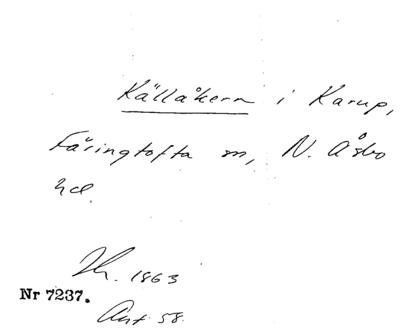 Källåkern i Karup,
Färingtofta sn, N. Åsbo
hd.
Th. 1863
Nr 7237.
Ant. 58.